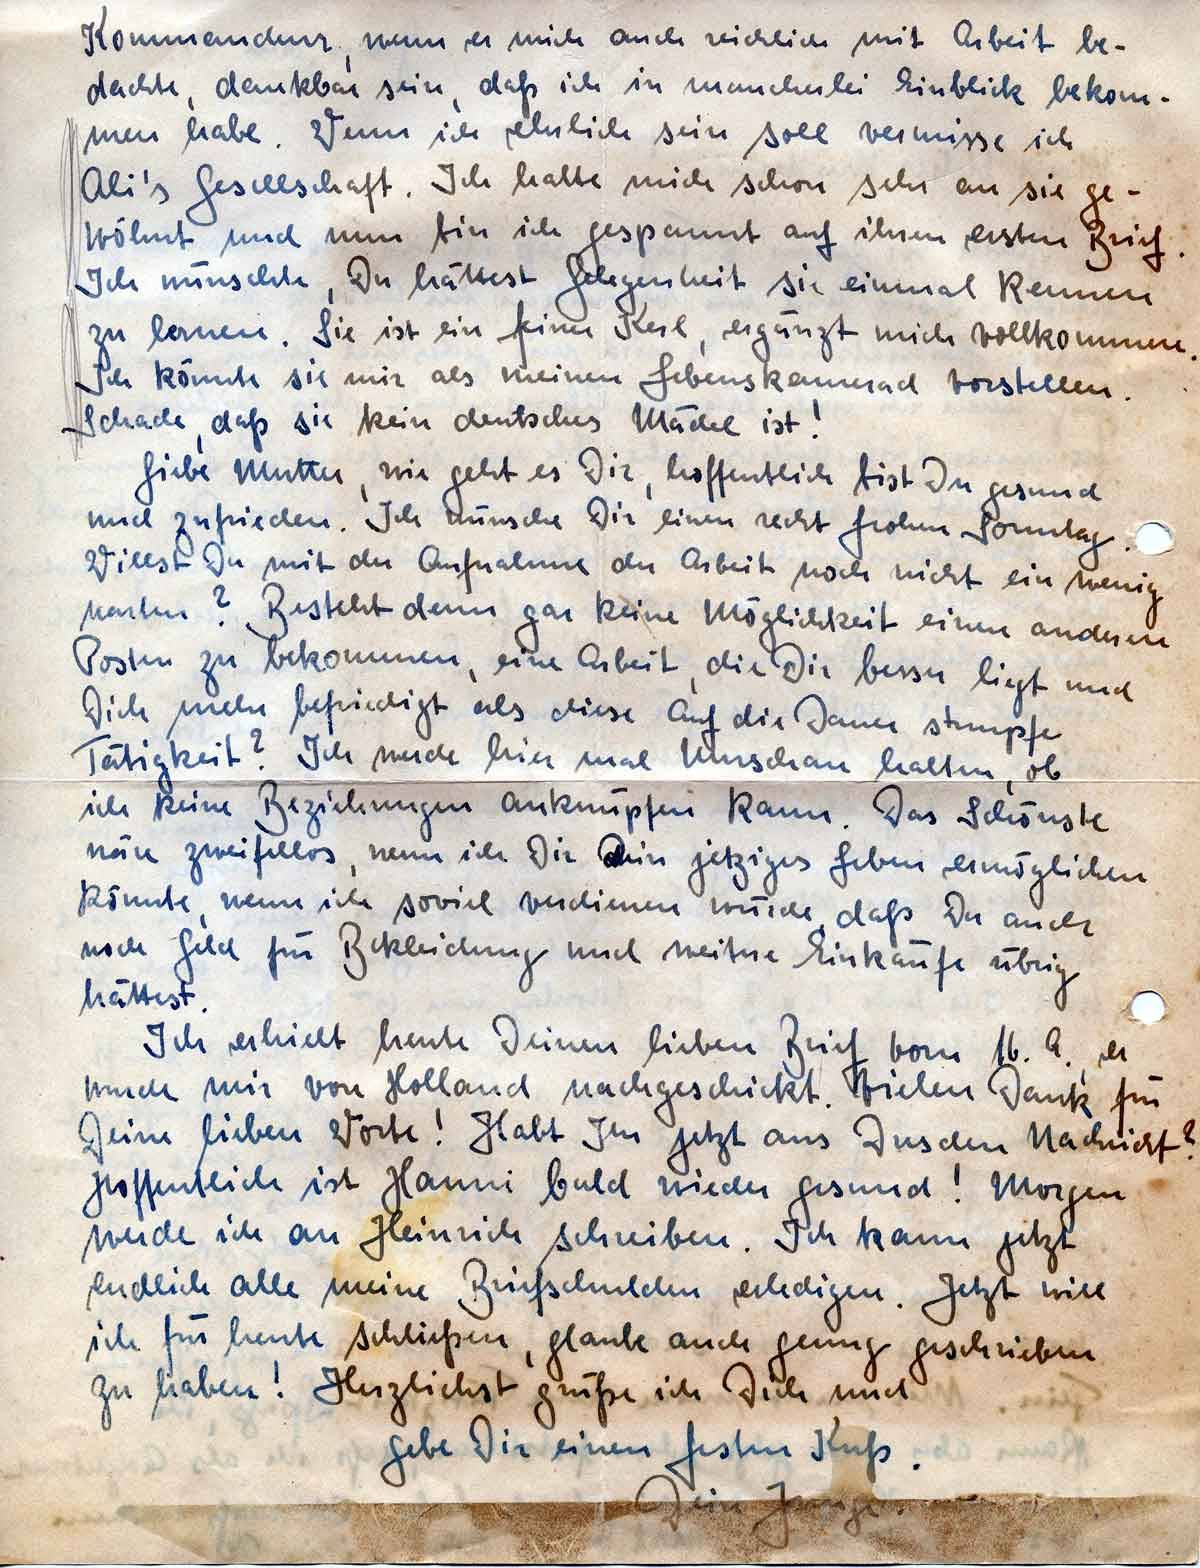 Kommandeur, wenn er mich auch reichlich mit Arbeit be-
dachte, dankbar sein, daß ich in mancherlei Einblick bekom-
men habe. Wenn ich ehrlich sein soll vermisse ich
Ali's Gesellschaft. Ich hatte mich schon sehr an sie ge-
wöhnt und nun bin ich gespannt auf ihren ersten Brief.
Ich wünschte, Du hättest Gelegenheit sie einmal kennen
zu lernen. Sie ist ein feiner Kerl, ergänzt mich vollkommen.
Ich könnte sie mir als meinen Lebenskamerad vorstellen.
Schade, daß sie kein deutsches Mädel ist!
Liebe Mutter, wie geht es Dir, hoffentlich bist Du gesund
und zufrieden. Ich wünsche Dir einen recht frohen Sonntag.
Willst Du mit der Aufnahme der Arbeit noch nicht ein wenig
warten? Besteht denn gar keine Möglichkeit einen anderen
Posten zu bekommen, eine Arbeit, die Dir besser liegt und
Dich mehr befriedigt als diese auf die Dauer stumpfe
Tätigkeit? Ich werde hier mal Umschau halten, ob
ich keine Beziehungen anknüpfen kann. Das Schönste
wäre zweifellos, wenn ich Dir Dein jetziges Leben ermöglichen
könnte, wenn ich soviel verdienen würde, daß Du auch
noch Geld für Bekleidung und weitere Einkäufe übrig
hättest.
Ich erhielt heute Deinen lieben Brief vom 16. A., er
wurde mir von Holland nachgeschickt. Vielen Dank für
Deine lieben Worte! Habt Ihr jetzt aus Dresden Nachricht?
Hoffentlich ist Hanni bald wieder gesund! Morgen
werde ich an Heinrich schreiben. Ich kann jetzt
endlich alle meine Briefschulden erledigen. Jetzt will
ich für heute schließen, glaube auch genug geschrieben
zu haben! Herzlichst grüße ich Dich und
gebe Dir einen festen Kuß.
Dein Junge.